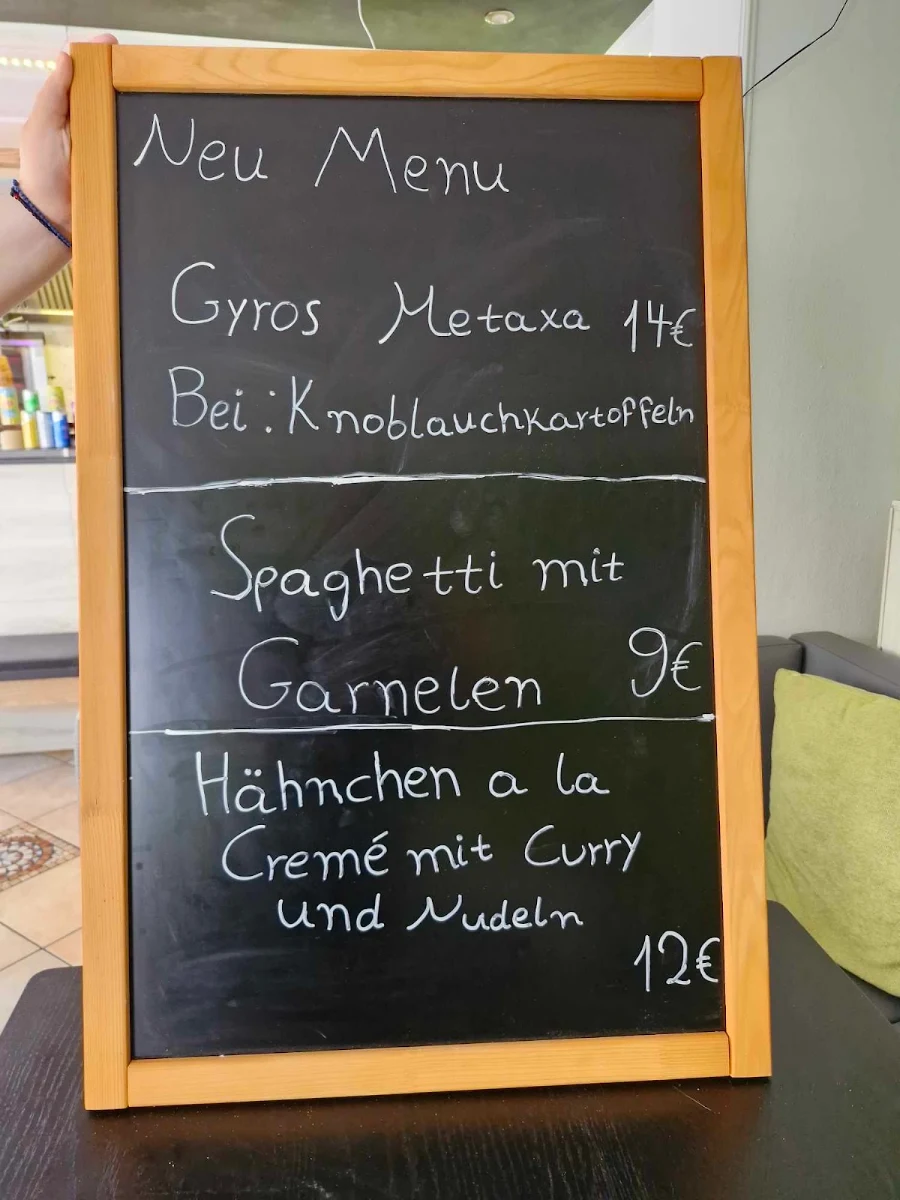 Neu Menu
Gyros Metaxa 14€
Bei: Knoblauchkartoffeln
Spaghetti mit
Garnelen 9€
Hähnchen a la
Cremé mit Curry
und Nudeln
12€